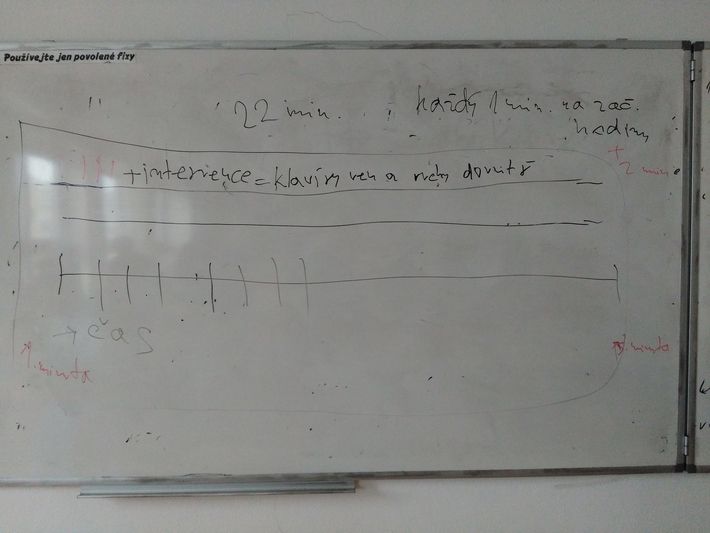 Používejte jen povolené fixy
22 min. každý 1 min. na zač.
hodiny
+ intervence = klavíry ven a dovnitř
+
2 min
→ čas
1. minuta
minuta